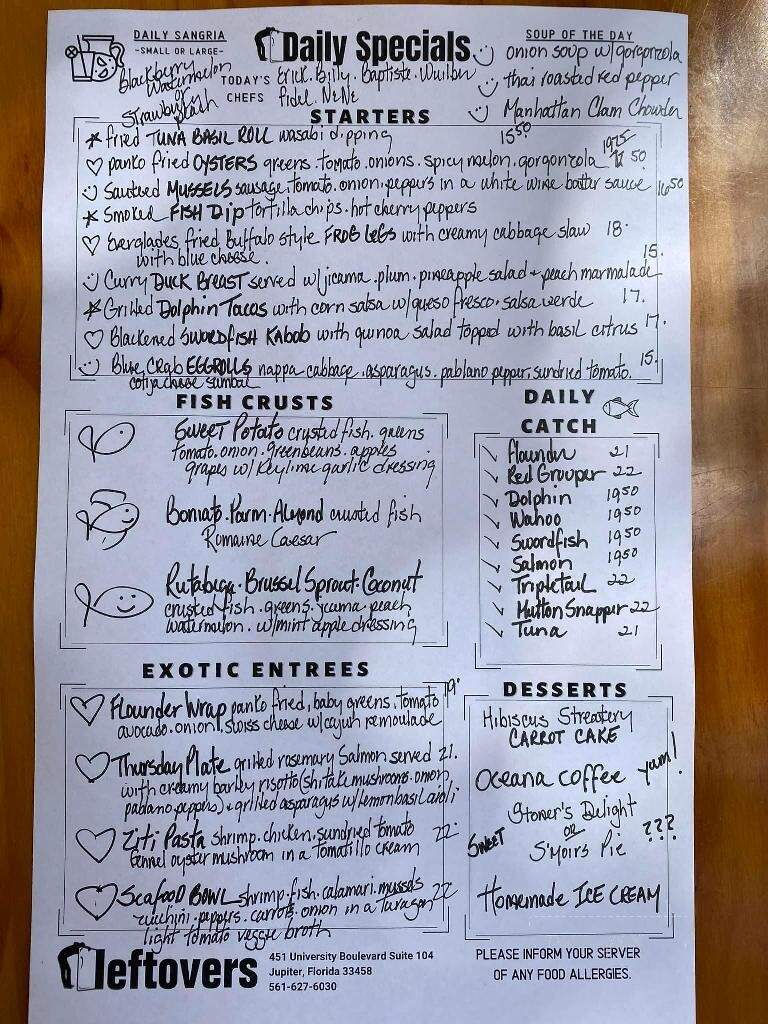 DAILY SANGRIA
-SMALL OR LARGE-
Blackberry
Watermelon
or
Strawberry
peach
Daily Specials
TODAY'S CHEFS Erick. Billy. Baptiste. Wuilber
Fidel. NeNe
SOUP OF THE DAY
onion soup w/gorgonzola
thai roasted red pepper
Manhattan Clam Chowder
STARTERS
fried TUNA BASIL ROLL wasabi dipping 15.50
panko fried OYSTERS greens. tomato. onions. spicy melon. gorgonzola 50
Sauteed MUSSELS sausage. tomato. onion. peppers in a white wine butter sauce 16.50
Smoked FISH DIP tortilla chips. hot cherry peppers
Everglades fried Buffalo style FROG LEGS with creamy cabbage slaw 18.
with blue cheese.
Curry DUCK BREAST served w/jicama. plum. pineapple salad + peach marmalade 15.
Grilled Dolphin Tacos with corn salsa w/queso fresco. salsa verde 17.
Blackened SWORDFISH KABOB with quinoa salad topped with basil citrus 17.
Blue Crab EGGROLLS nappa cabbage. asparagus. pablano pepper. sundried tomato. 15.
cotija cheese sambal
FISH CRUSTS
Sweet Potato crusted fish. greens
tomato. onion. greenbeans. apples
grapes w/ Keylime garlic dressing
Boniato. Parm. Almond crusted fish
Romaine Caesar
Rutabega. Brussel Sprout. Coconut
crusted fish. greens. jicama peach
watermelon. w/mint apple dressing
DAILY
CATCH
Flounder 21
Red Grouper 22
Dolphin 19.50
Wahoo 19.50
Swordfish 19.50
Salmon 19.50
Tripletail 22
Mutton Snapper 22
Tuna 21
EXOTIC ENTREES
Flounder Wrap panko fried, baby greens, tomato 19.
avocado. onion. swiss cheese w/cajun remoulade
Thursday Plate grilled rosemary Salmon served 21.
with creamy barley risotto (shitake mushrooms. onion
pablano peppers) + grilled asparagus w/lemon basil aioli
Ziti Pasta shrimp. chicken. sundried tomato 22.
fennel oyster mushroom in a Tomatillo cream
Seafood BOWL shrimp. fish. calamari. mussels 22
zucchini. peppers. carrots. onion in a Taragon
light tomato veggie broth
DESSERTS
Hibiscus Streatery
CARROT CAKE
Oceana coffee yum!
Stoner's Delight
Sweet or ???
S'moirs Pie
Homemade ICE CREAM
leftovers
451 University Boulevard Suite 104
Jupiter, Florida 33458
561-627-6030
PLEASE INFORM YOUR SERVER
OF ANY FOOD ALLERGIES.